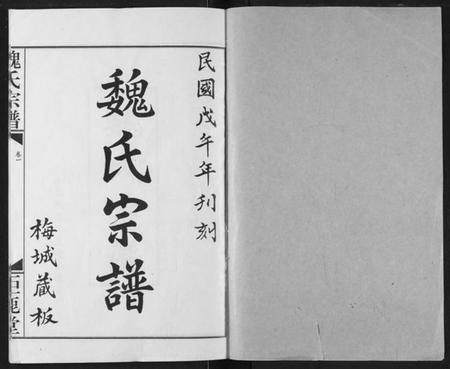 民國戊午年刊刻
魏氏宗譜
梅城藏板
魏氏宗譜
卷一